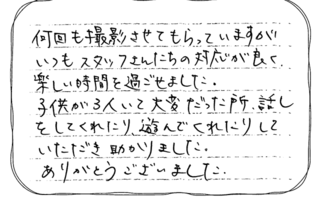 何回も撮影させてもらっていますが
いつもスタッフさんたちの対応が良く、
楽しい時間を過ごせました。
子供が3人いて大変だった所、話し
をしてくれたり、遊んでくれたりして
いただき助かりました。
ありがとうございました。